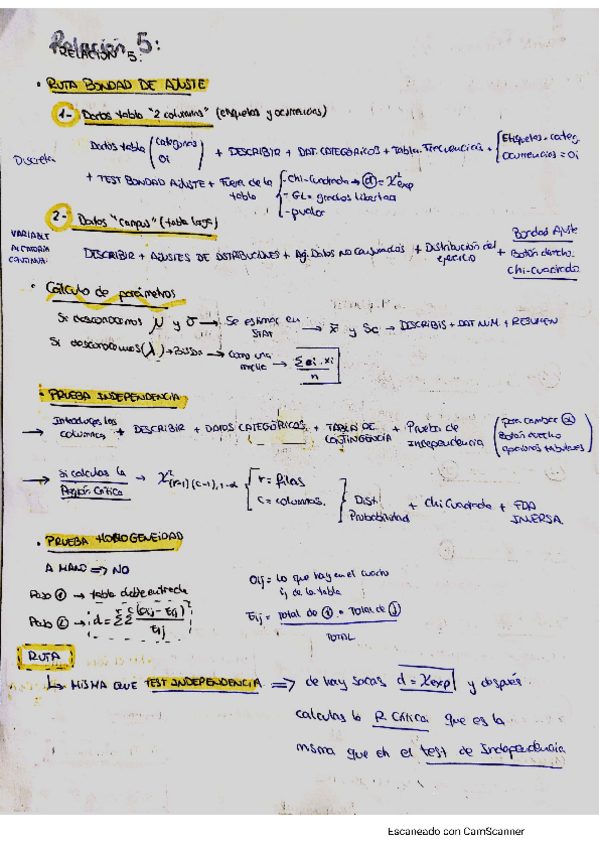 Relación 5:
RELACIÓN 5:
• RUTA BONDAD DE AJUSTE
1- Datos tabla "2 columnas" (etiquetas y ocurrencias)
Discreta
Datos tabla (categorías Oi) + DESCRIBIR + DAT. CATEGÓRICOS + Tabla. Frecuencias + {Etiquetas = categ. Ocurrencias = Oi
+ TEST BONDAD AJUSTE + Fuera de la tabla {- Chi-Cuadrada → d = X²exp
- GL = grados libertad
- pvalor
2- Datos "Campus" (tabla larga)
VARIABLE ALEATORIA CONTINUA:
DESCRIBIR + AJUSTES DE DISTRIBUCIONES + Aj. Datos no Censurados + Distribución del ejercicio + Bondad Ajuste
Botón derecho.
Chi-cuadrado
• Cálculo de parámetros
Si desconocemos μ y σ → Se estiman en STAT → x̄ y Sc → DESCRIBIS + DAT NUM. + RESUMEN
Si desconocemos (λ) → Como una media → Σ oi · xi / n
• PRUEBA INDEPENDENCIA
→ Introduces las columnas + DESCRIBIR + DATOS CATEGÓRICOS + TABLA DE CONTINGENCIA + Prueba de independencia (para cambiar α Botón derecho opciones tabulares)
→ Si calculas la Región Crítica → X²(r-1)(c-1), 1-α {r = filas
c = columnas. } Dist. Probabilidad + Chi Cuadrada + FDA INVERSA
• PRUEBA HOMOGENEIDAD
A MANO ⇒ NO
Paso 1 → tabla doble entrada
Oij = Lo que hay en el cuadro ij de la tabla
Paso 2 → d = Σ Σ (Oij - Eij)² / Eij
Eij = Total de i · Total de j / TOTAL
RUTA
↳ MISMA QUE TEST INDEPENDENCIA ⇒ de hay sacas d = Xexp y después
calculas la R. Crítica que es la
misma que en el test de Independencia
Escaneado con CamScanner